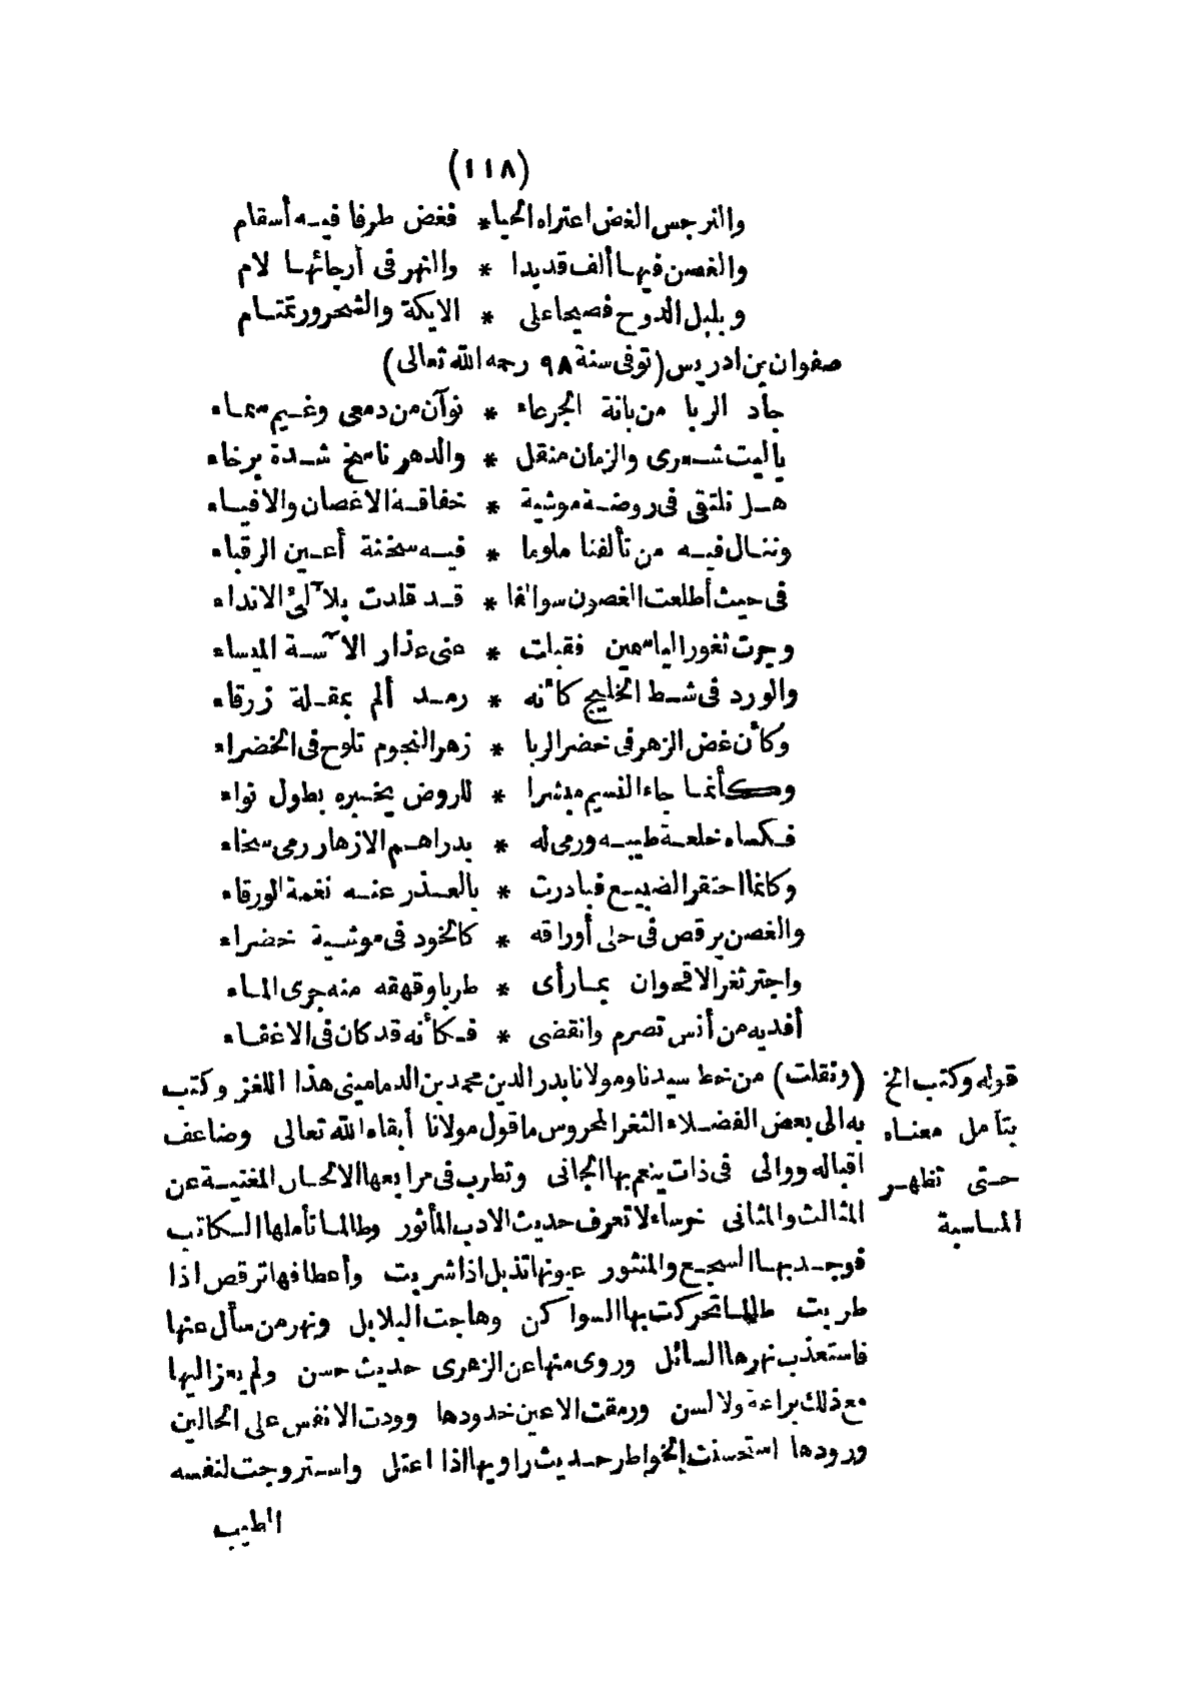 (١١٨)
والنرجس الغض اعتراه الحياء * فغض طرفا فيه أسقام
والغصن فيها ألف قد يدا * والنهر فى أرجائها لام
وبلبل الدوح فصيحا على * الايكة والشحرور تمتام
صفوان بن ادريس (توفى سنة ٩٨ رحمه الله تعالى)
جاد الربا من بانة الجرعاء * نوآن من دمعى وغيم سماء
ياليت شعرى والزمان منقل * والدهر ناسخ شدة برخاء
هل نلتقى فى روضة موشية * خفاقة الاغصان والافياء
وننال فيه من تألفنا ولوما * فيه سخنة أعين الرقباء
فى حيث أطلعت الغصون سوالفا * قد قلدت بلآلئ الانداء
وجرت ثغور الياسمين فقبلت * عنى عذار الآسة الميساء
والورد فى شط الخليج كأنه * رمد ألم بمقلة زرقاء
وكأن غض الزهر فى خضر الربا * زهر النجوم تلوح فى الخضراء
وكأنما جاء النسيم مبشرا * للروض يخبره بطول نواء
فكساه خلعة طيبه ورمى له * بدراهم الازهار رمى سخاء
وكانما احتقر الضبيع فبادرت * بالعذر عنه نغمة الورقاء
والغصن يرقص فى حلى أوراقه * كالخود فى موشية خضراء
واجتر ثغر الاقحوان بما رأى * طربا وقهقه منه جرى الماء
أفديه من أنس تصرم وانقضى * فكأنه قد كان فى الاغفاء
(ونقلت) من خط سيدنا ومولانا بدر الدين محمد بن الدمامينى هذا اللغز وكتب
به الى بعض الفضلاء الثغر المحروس ما قول مولانا أبقاه الله تعالى وضاعف
اقباله ووالى فى ذات ينعم بها الجانى وتطرب فى مرابعها الالحان المغنية عن
المثالث والمثانى خرساء لا تعرف حديث الادب المأثور وطالما تأملها الكاتب
فوجد بها السجع والمنثور عيونها تذبل اذا شربت وأعطافها ترقص اذا
طربت طالما تحركت بها السواكن وهاجت البلابل ونهر من سأل عنها
فاستعذب نهرها السائل وروى منها عن الزهرى حديث حسن ولم يعز اليها
مع ذلك براعة ولا لسن ورمقت الاعين خدودها وودت الانفس على الحالين
ورودها استحسنت الخواطر حديث راويها اذا اعتل واستروحت لنفسه
الطيب
قوله وكتب الخ
يتأمل معناه
حتى تظهر
المناسبة